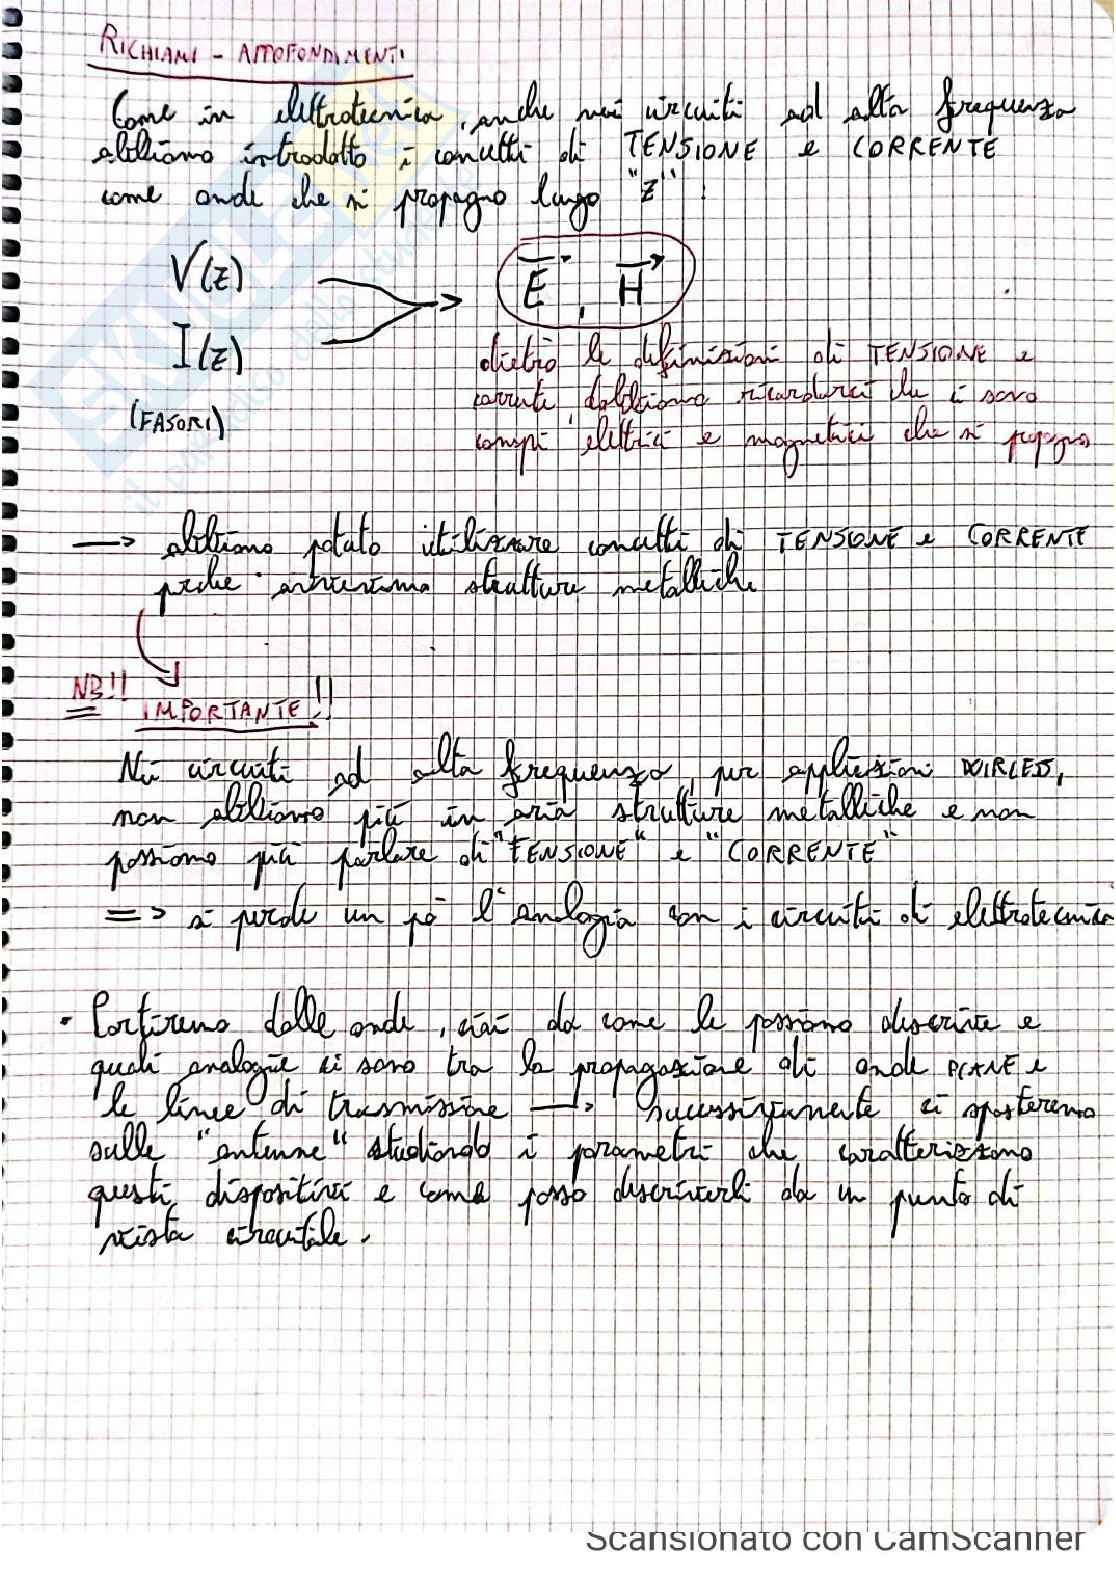 RICHIAMI - APPROFONDIMENTI
Come in elettrotecnica, anche nei circuiti ad alta frequenza
abbiamo introdotto i concetti di TENSIONE e CORRENTE
come onde che si propagno lungo "Z" :
V(z)
I(z)
(FASORI)
E , H
dietro le definizioni di TENSIONE e
corrente dobbiamo ricordarci che ci sono
campi elettrici e magnetici che si propagno
—> abbiamo potuto utilizzare concetti di TENSIONE e CORRENTE
perche' avevamo strutture metalliche
NB!!
IMPORTANTE!!
Nei circuiti ad alta frequenza, per applicazioni WIRLESS,
non abbiamo più in aria strutture metalliche e non
possiamo più parlare di "TENSIONE" e "CORRENTE"
=> si perde un pò l'analogia con i circuiti di elettrotecnica
• Partiremo dalle onde, cioè da come le possiamo descrivere e
quali analogie ci sono tra la propagazione di onde PIANE e
le linee di trasmissione —> successivamente ci sposteremo
sulle "antenne" studiando i parametri che caratterizzano
questi dispositivi e come posso descriverli da un punto di
vista circuitale.
SKUOLA.net
il paradiso dello studente
Scansionato con CamScanner